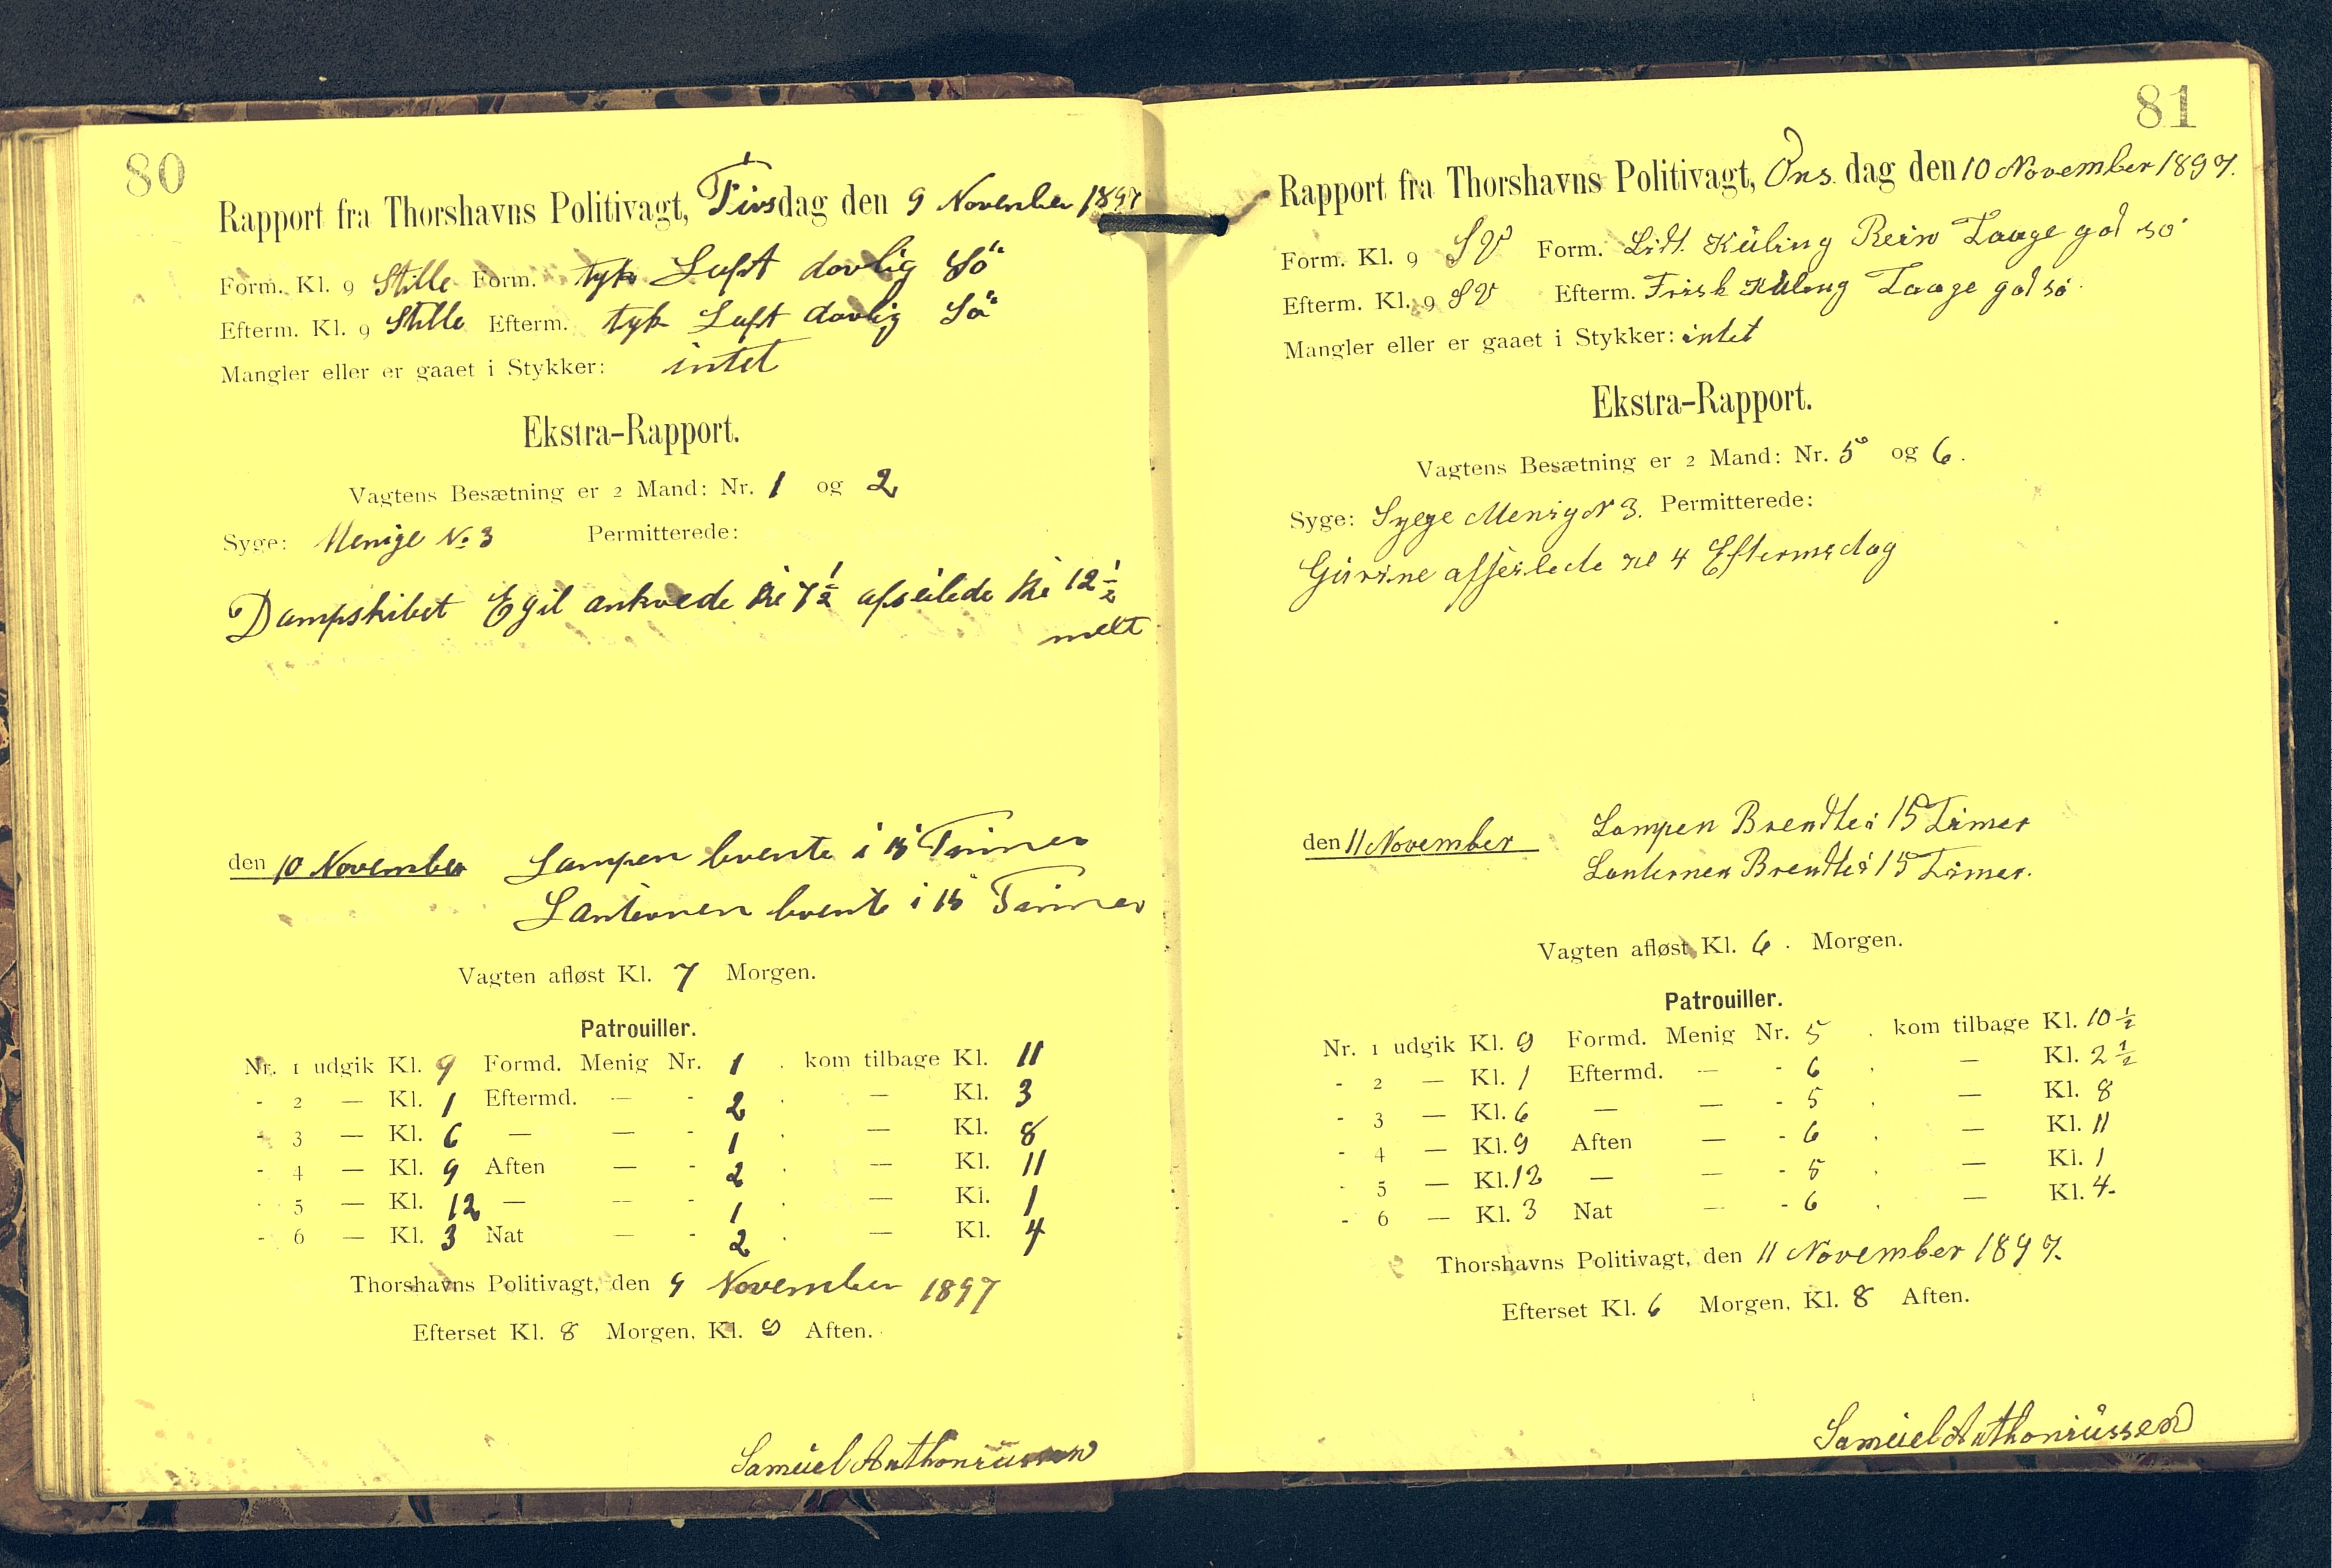 80
Rapport fra Thorshavns Politivagt, Tirsdag den 9 November 1897
Form. Kl. 9 Stille Form. tyk Luft dovlig Sö
Efterm. Kl. 9 Stille Efterm. tyk Luft dovlig Sö
Mangler eller er gaaet i Stykker: intet
Ekstra-Rapport.
Vagtens Besætning er 2 Mand: Nr. 1 og 2
Syge: Menige No 3 Permitterede:
Dampskibet Egil ankvede Kl 7 1/2 afseilede Kl 12 1/2
den 10 November Lampen brente i 15 Timer
Lanternen brente i 15 Timer
Vagten afløst Kl. 7 Morgen.
Patrouiller.
Nr. 1 udgik Kl. 9 Formd. Menig Nr. 1 . kom tilbage Kl. 11
- 2 — Kl. 1 Eftermd. — - 2 . — Kl. 3
- 3 — Kl. 6 — — - 1 . — Kl. 8
- 4 — Kl. 9 Aften — - 2 . — Kl. 11
- 5 — Kl. 12 — — - 1 . — Kl. 1
- 6 — Kl. 3 Nat — - 2 . — Kl. 4
Thorshavns Politivagt, den 9 November 1897
Efterset Kl. 8 Morgen, Kl. 9 Aften.
Samúel Anthoniüssen
81
Rapport fra Thorshavns Politivagt, Ons. dag den 10 November 1897.
Form. Kl. 9 SV Form. Lidt Küling Rein Taage god sö
Efterm. Kl. 9 SV Efterm. Frisk Küling Taage god sö
Mangler eller er gaaet i Stykker: intet
Ekstra-Rapport.
Vagtens Besætning er 2 Mand: Nr. 5 og 6.
Syge: Syge Menig N 3. Permitterede:
afseilede Kl 4 Eftermedag
den 11 November Lampen Brendte i 15 Timer
Lanternen Brendte i 15 Timer.
Vagten afløst Kl. 6. Morgen.
Patrouiller.
Nr. 1 udgik Kl. 9 Formd. Menig Nr. 5 . kom tilbage Kl. 10 1/2
- 2 — Kl. 1 Eftermd. — - 6 . — Kl. 2 1/2
- 3 — Kl. 6 — — - 5 . — Kl. 8
- 4 — Kl. 9 Aften — - 6 . — Kl. 11
- 5 — Kl. 12 — — - 5 . — Kl. 1
- 6 — Kl. 3 Nat — - 6 . — Kl. 4-
Thorshavns Politivagt, den 11 November 1897.
Efterset Kl. 6 Morgen, Kl. 8 Aften.
Samúel Anthoniüssen